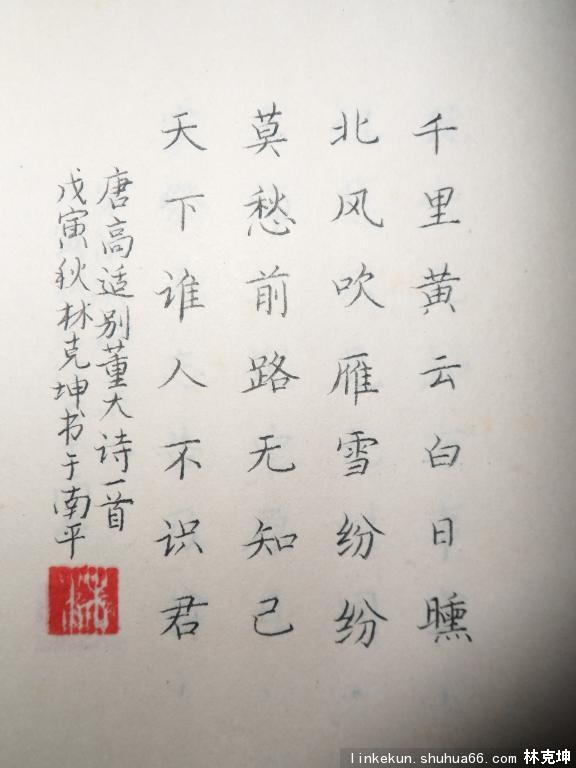 千里黄云白日曛
北风吹雁雪纷纷
莫愁前路无知己
天下谁人不识君
唐高适别董大诗一首
戊寅秋林克坤书于南平
林
linkekun.shuhua66.com 林克坤